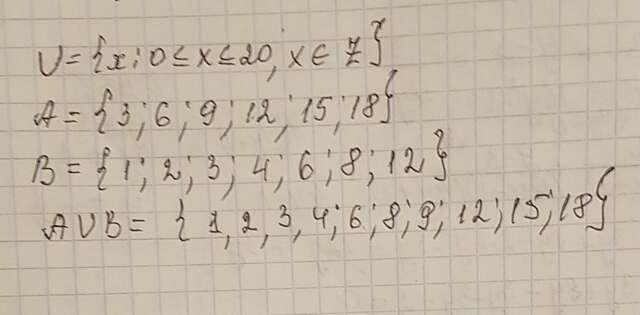 U = {x: 0 ≤ x ≤ 20, x ∈ Z}
A = {3; 6; 9; 12; 15; 18}
B = {1; 2; 3; 4; 6; 8; 12}
A∪B = {1, 2, 3, 4; 6; 8; 9; 12; 15; 18}